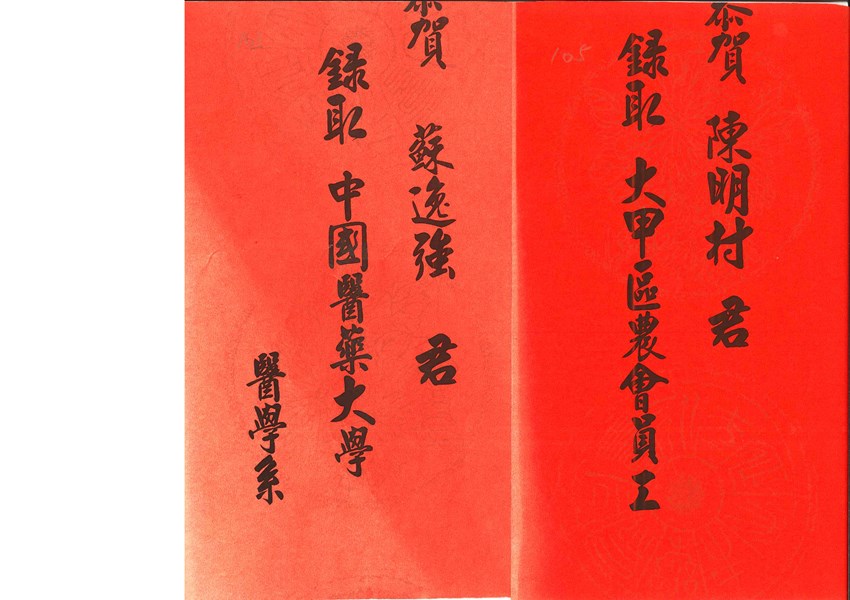 恭賀 陳明村 君
錄取 大甲區農會員工
105
恭賀 蘇逸強 君
錄取 中國醫藥大學
醫學系